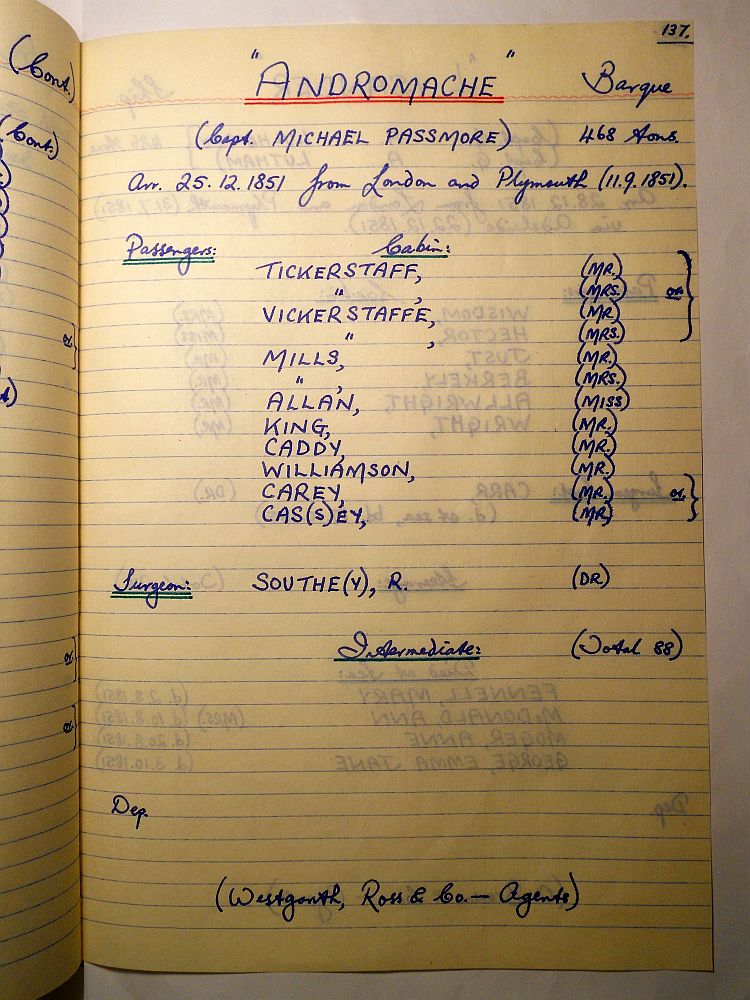 137.
"ANDROMACHE" Barque
(Capt. MICHAEL PASSMORE) 468 tons.
Arr. 25.12.1851 from London and Plymouth (11.9.1851).
Passengers: Cabin:
TICKERSTAFF, (MR.)
" , (MRS.) or
VICKERSTAFFE, (MR.)
" , (MRS.)
MILLS, (MR.)
" , (MRS.)
ALLAN, (MISS)
KING, (MR.)
CADDY, (MR.)
WILLIAMSON, (MR.)
CAREY, (MR.) or
CAS(S)EY, (MR.)
Surgeon: SOUTHE(Y), R. (DR.)
Intermediate: (Total 88)
Dep.
(Westgarth, Ross & Co. — Agents)
(Cont.)
(Cont.)
or
or
or